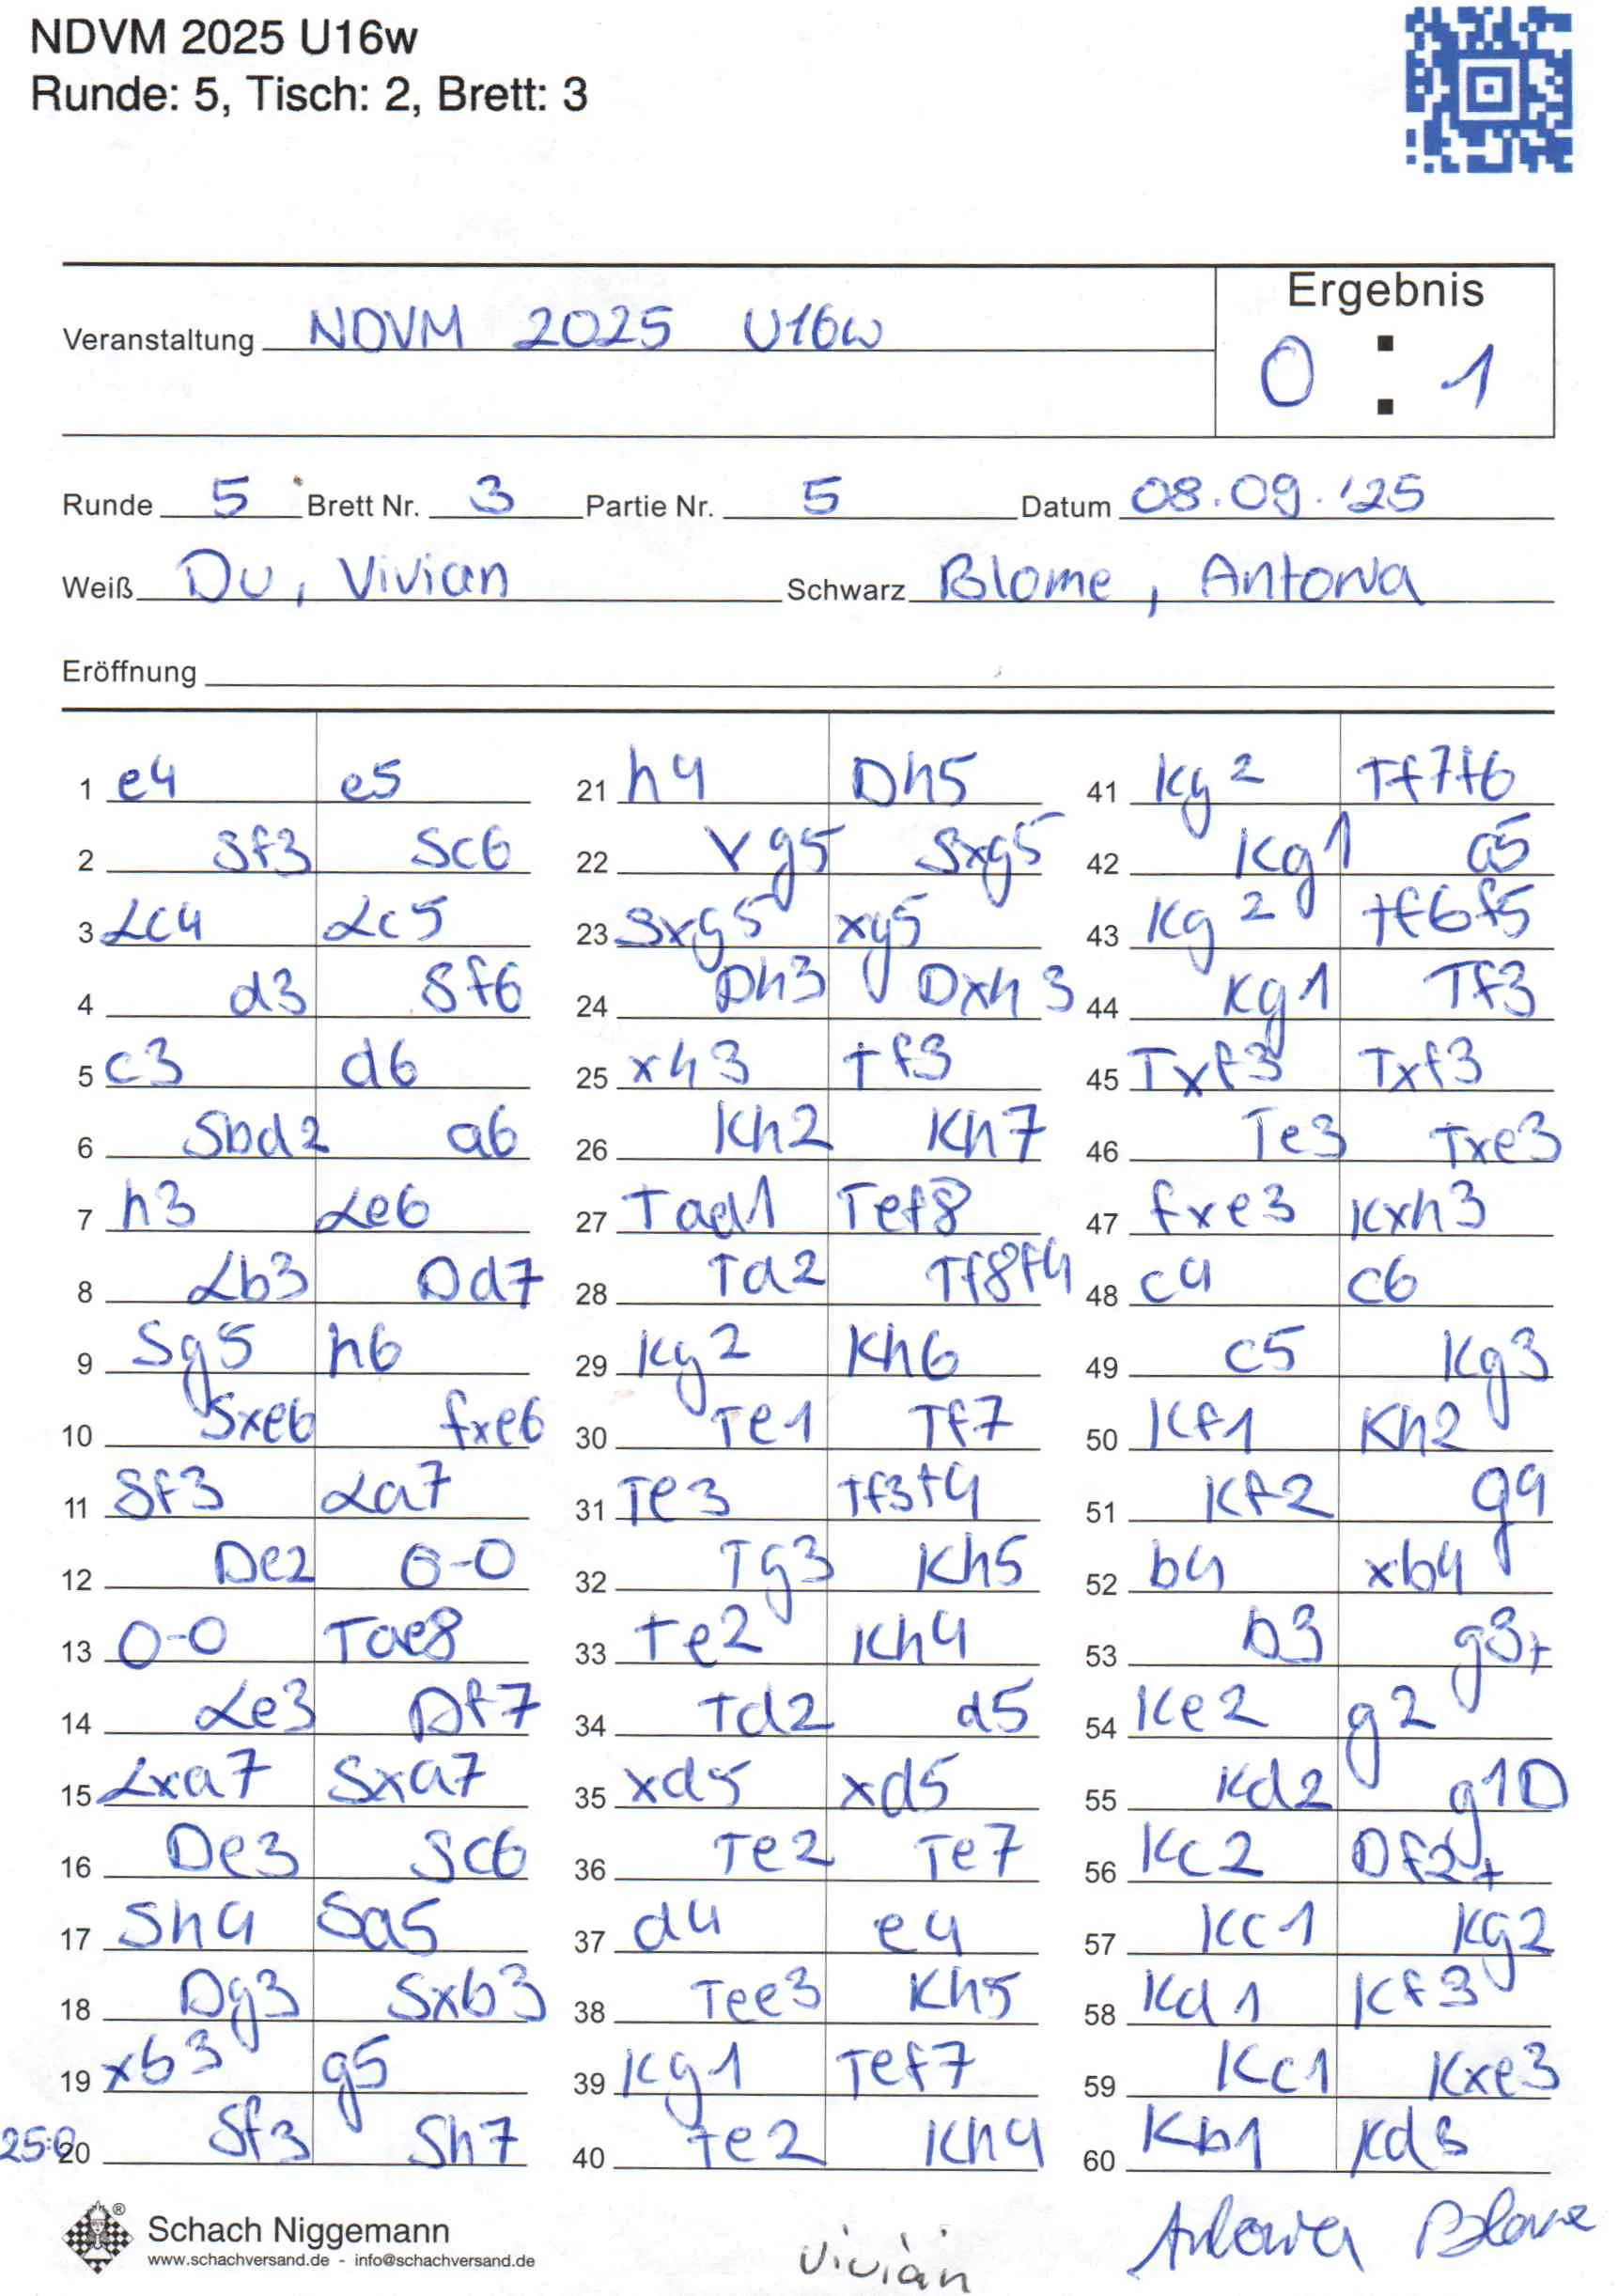 NDVM 2025 U16w
Runde: 5, Tisch: 2, Brett: 3
Ergebnis
Veranstaltung NDVM 2025 U16w
0 : 1
Runde 5 Brett Nr. 3 Partie Nr. 5 Datum 08.09.'25
Weiß Du, Vivian Schwarz Blome, Antonia
Eröffnung
1 e4 e5
2 Sf3 Sc6
3 Lc4 Lc5
4 d3 Sf6
5 c3 d6
6 Sbd2 a6
7 h3 Le6
8 Lb3 Dd7
9 Sg5 h6
10 Sxe6 fxe6
11 Sf3 La7
12 De2 0-0
13 0-0 Tae8
14 Le3 Df7
15 Lxa7 Sxa7
16 De3 Sc6
17 Sh4 Sa5
18 Dg3 Sxb3
19 xb3 g5
20 Sf3 Sh7
21 h4 Dh5
22 xg5 Sxg5
23 Sxg5 xg5
24 Dh3 Dxh3
25 xh3 Tf3
26 Kh2 Kh7
27 Tad1 Tef8
28 Td2 Tf8f4
29 Kg2 Kh6
30 Te1 Tf7
31 Te3 Tf3f4
32 Tg3 Kh5
33 Te2 Kh4
34 Td2 d5
35 xd5 xd5
36 Te2 Te7
37 d4 e4
38 Tee3 Kh5
39 Kg1 Tef7
40 Te2 Kh4
41 Kg2 Tf7f6
42 Kg1 a5
43 Kg2 Tf6f5
44 Kg1 Tf3
45 Txf3 Txf3
46 Te3 Txe3
47 fxe3 Kxh3
48 c4 c6
49 c5 Kg3
50 Kf1 Kh2
51 Kf2 g4
52 b4 xb4
53 b3 g3+
54 Ke2 g2
55 Kd2 g1D
56 Kc2 Df2+
57 Kc1 Kg2
58 Kd1 Kf3
59 Kc1 Kxe3
60 Kb1 Kd3
Schach Niggemann
www.schachversand.de - info@schachversand.de
Vivian
Antonia Blome